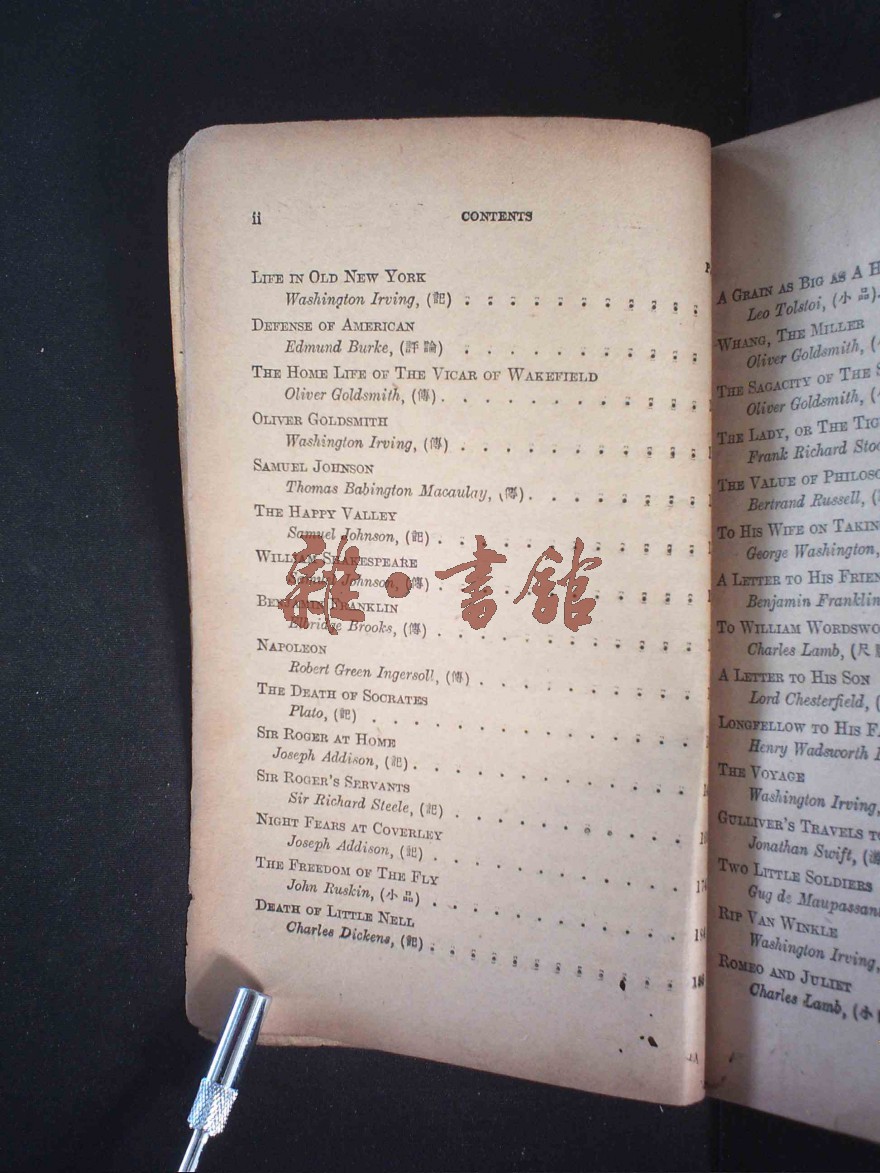 ii CONTENTS
LIFE IN OLD NEW YORK
Washington Irving, (記)
DEFENSE OF AMERICAN
Edmund Burke, (評論)
THE HOME LIFE OF THE VICAR OF WAKEFIELD
Oliver Goldsmith, (傳)
OLIVER GOLDSMITH
Washington Irving, (傳)
SAMUEL JOHNSON
Thomas Babington Macaulay, (傳)
THE HAPPY VALLEY
Samuel Johnson, (記)
WILLIAM SHAKESPEARE
Samuel Johnson, (傳)
BENJAMIN FRANKLIN
Elbridge Brooks, (傳)
NAPOLEON
Robert Green Ingersoll, (傳)
THE DEATH OF SOCRATES
Plato, (記)
SIR ROGER AT HOME
Joseph Addison, (記)
SIR ROGER'S SERVANTS
Sir Richard Steele, (記)
NIGHT FEARS AT COVERLEY
Joseph Addison, (記)
THE FREEDOM OF THE FLY
John Ruskin, (小品)
DEATH OF LITTLE NELL
Charles Dickens, (記)
雜·書館
A GRAIN AS BIG AS A H
Leo Tolstoi, (小品)
WHANG, THE MILLER
Oliver Goldsmith, (
THE SAGACITY OF THE S
Oliver Goldsmith, (
THE LADY, OR THE TIG
Frank Richard Stoc
THE VALUE OF PHILOSO
Bertrand Russell, (
TO HIS WIFE ON TAKIN
George Washington,
A LETTER TO HIS FRIEN
Benjamin Franklin
TO WILLIAM WORDSWO
Charles Lamb, (尺
A LETTER TO HIS SON
Lord Chesterfield, (
LONGFELLOW TO HIS FA
Henry Wadsworth
THE VOYAGE
Washington Irving,
GULLIVER'S TRAVELS TO
Jonathan Swift, (
TWO LITTLE SOLDIERS
Gug de Maupassant
RIP VAN WINKLE
Washington Irving,
ROMEO AND JULIET
Charles Lamb, (小